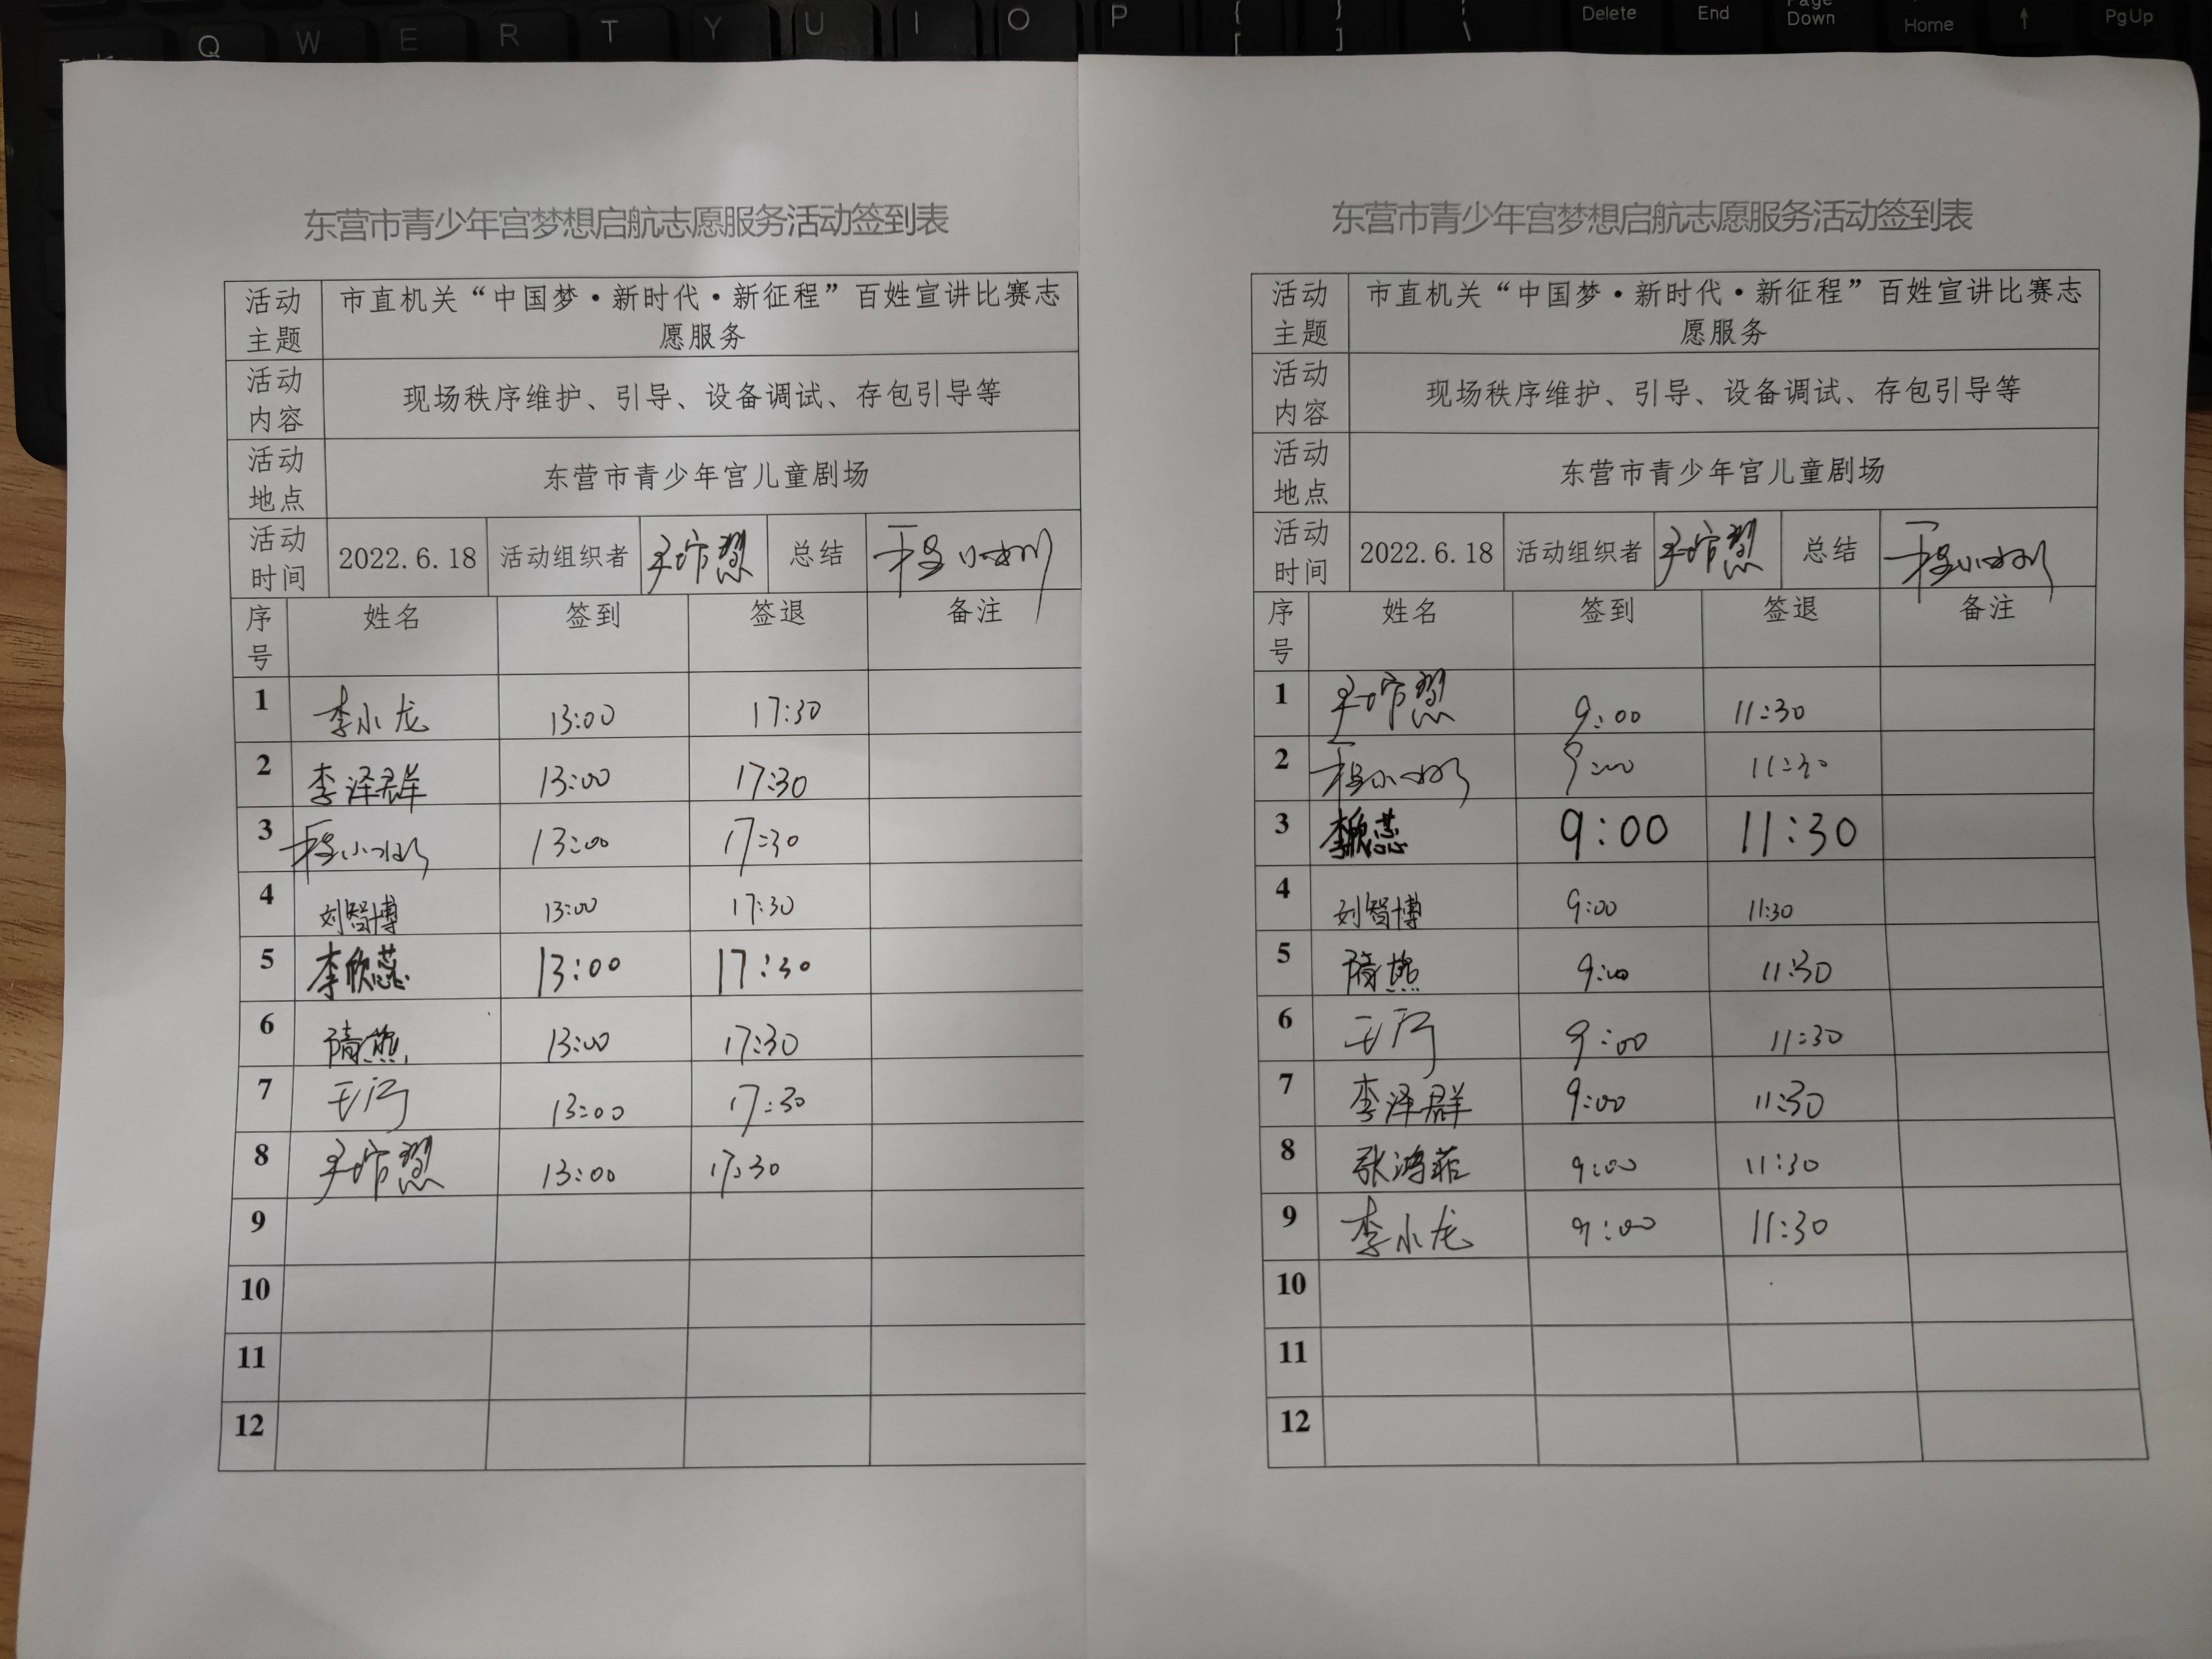 Q W E R T Y U I O P { [ } ] \ Delete End Page Down Home ↑ PgUp
东营市青少年宫梦想启航志愿服务活动签到表
活动主题 市直机关“中国梦·新时代·新征程”百姓宣讲比赛志
愿服务
活动内容 现场秩序维护、引导、设备调试、存包引导等
活动地点 东营市青少年宫儿童剧场
活动时间 2022.6.18 活动组织者 总结
序号 姓名 签到 签退 备注
1 李小龙 13:00 17:30
2 李泽群 13:00 17:30
3 13:00 17:30
4 刘智博 13:00 17:30
5 李欣蕊 13:00 17:30
6 隋燕 13:00 17:30
7 13:00 17:30
8 13:00 17:30
9
10
11
12
东营市青少年宫梦想启航志愿服务活动签到表
活动主题 市直机关“中国梦·新时代·新征程”百姓宣讲比赛志
愿服务
活动内容 现场秩序维护、引导、设备调试、存包引导等
活动地点 东营市青少年宫儿童剧场
活动时间 2022.6.18 活动组织者 总结
序号 姓名 签到 签退 备注
1 9:00 11:30
2 9:00 11:30
3 李欣蕊 9:00 11:30
4 刘智博 9:00 11:30
5 隋燕 9:00 11:30
6 9:00 11:30
7 李泽群 9:00 11:30
8 张鸿菲 9:00 11:30
9 李小龙 9:00 11:30
10
11
12